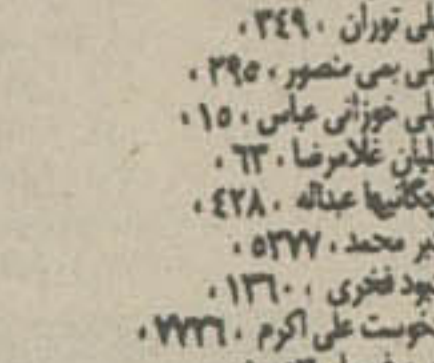 لی توران ، ۳٤۹ ،
لی بمی منصور ، ۲۹٥ ،
لی خوزانی عباس ، ۱٥ ،
لیان غلامرضا ، ٦۳ ،
چگانیها عبداله ، ٤۲۸ ،
بر محمد ، ٥۳۷۷ ،
بود فخری ، ۱۳٦۰ ،
خوست علی اکرم ، ۷۷۳٦ ،